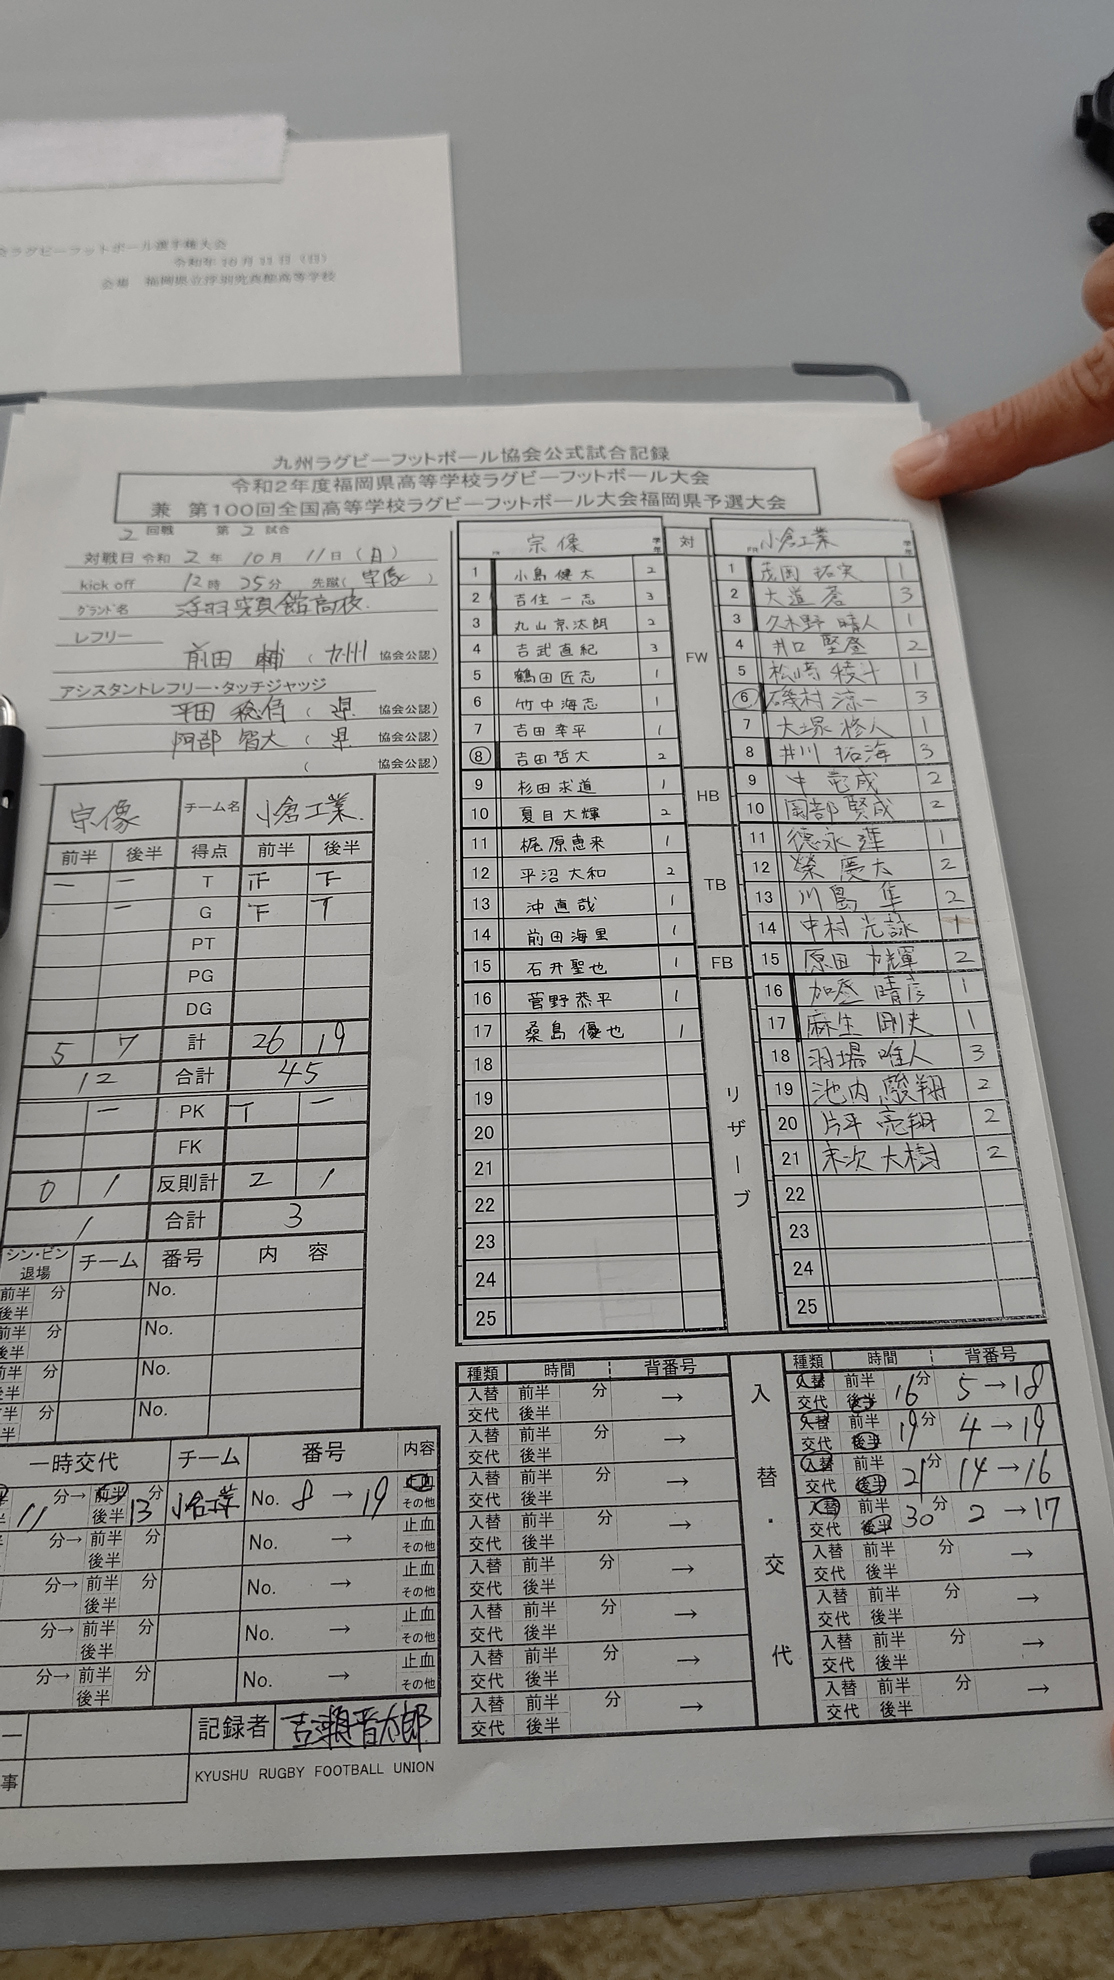 会ラグビーフットボール選手権大会
令和年10月11日(日)
会場
九州ラグビーフットボール協会公式試合記録
令和2年度福岡県高等学校ラグビーフットボール大会
兼 第100回全国高等学校ラグビーフットボール大会福岡県予選大会
2 回戦 第 2 試合
対戦日 令和 2 年 10 月 11 日 (日)
kick off 12 時 25 分 先蹴( 宗像 )
グランド名
レフリー
前田 輔 ( 九州 協会公認)
アシスタントレフリー・タッチジャッジ
平田 ( 県 協会公認)
阿部 智大 ( 県 協会公認)
( 協会公認)
宗像 チーム名 小倉工業
前半 後半 得点 前半 後半
一 一 T 正 下
一 G 下 T
PT
PG
DG
5 7 計 26 19
12 合計 45
一 PK T 一
FK
0 1 反則計 2 1
1 合計 3
シン・ビン 退場 チーム 番号 内 容
前半 分 後半 No.
前半 分 後半 No.
前半 分 後半 No.
半 分 半 No.
一時交代 チーム 番号 内容
11 分→ 前半 後半 13 分 小倉工業 No. 8 → 19 止血 その他
分→ 前半 後半 分 No. → 止血 その他
分→ 前半 後半 分 No. → 止血 その他
分→ 前半 後半 分 No. → 止血 その他
分→ 前半 後半 分 No. → 止血 その他
ー
事
記録者 吉瀬晋太郎
KYUSHU RUGBY FOOTBALL UNION
宗像 学年 対
1 小島 健太 2
2 吉住 一志 3
3 丸山 京汰朗 2
4 吉武 直紀 3
5 鶴田 匠志 1
6 竹中 海志 1
7 吉田 幸平 1
8 吉田 哲大 2
9 杉田 求道 1
10 夏目 大輝 2
11 梶原 恵来 1
12 平沼 大和 2
13 沖 直哉 1
14 前田 海里 1
15 石井 聖也 1
16 菅野 恭平 1
17 桑島 優也 1
18
19
20
21
22
23
24
25
FW
HB
TB
FB
リザーブ
小倉工業 学年
1 茂岡 拓実 1
2 大道 蒼 3
3 久木野 晴人 1
4 井口 堅登 2
5 松崎 稜斗 1
6 磯村 涼一 3
7 大塚 修人 1
8 井川 拓海 3
9 中 竜成 2
10 岡部 賢成 2
11 徳永 蓮 1
12 榮 慶大 2
13 川島 隼 2
14 中村 光詠 1
15 原田 輝 2
16 加登 晴彦 1
17 麻生 剛史 1
18 羽場 唯人 3
19 池内 駿翔 2
20 片平 亮翔 2
21 末次 大樹 2
22
23
24
25
種類 時間 背番号
入替 交代 前半 後半 分 →
入替 交代 前半 後半 分 →
入替 交代 前半 後半 分 →
入替 交代 前半 後半 分 →
入替 交代 前半 後半 分 →
入替 交代 前半 後半 分 →
入替 交代 前半 後半 分 →
入替 交代 前半 後半 分 →
入替・交代
種類 時間 背番号
入替 交代 前半 後半 16分 5→18
入替 交代 前半 後半 19分 4→19
入替 交代 前半 後半 21分 14→16
入替 交代 前半 後半 30分 2→17
入替 交代 前半 後半 分 →
入替 交代 前半 後半 分 →
入替 交代 前半 後半 分 →
入替 交代 前半 後半 分 →